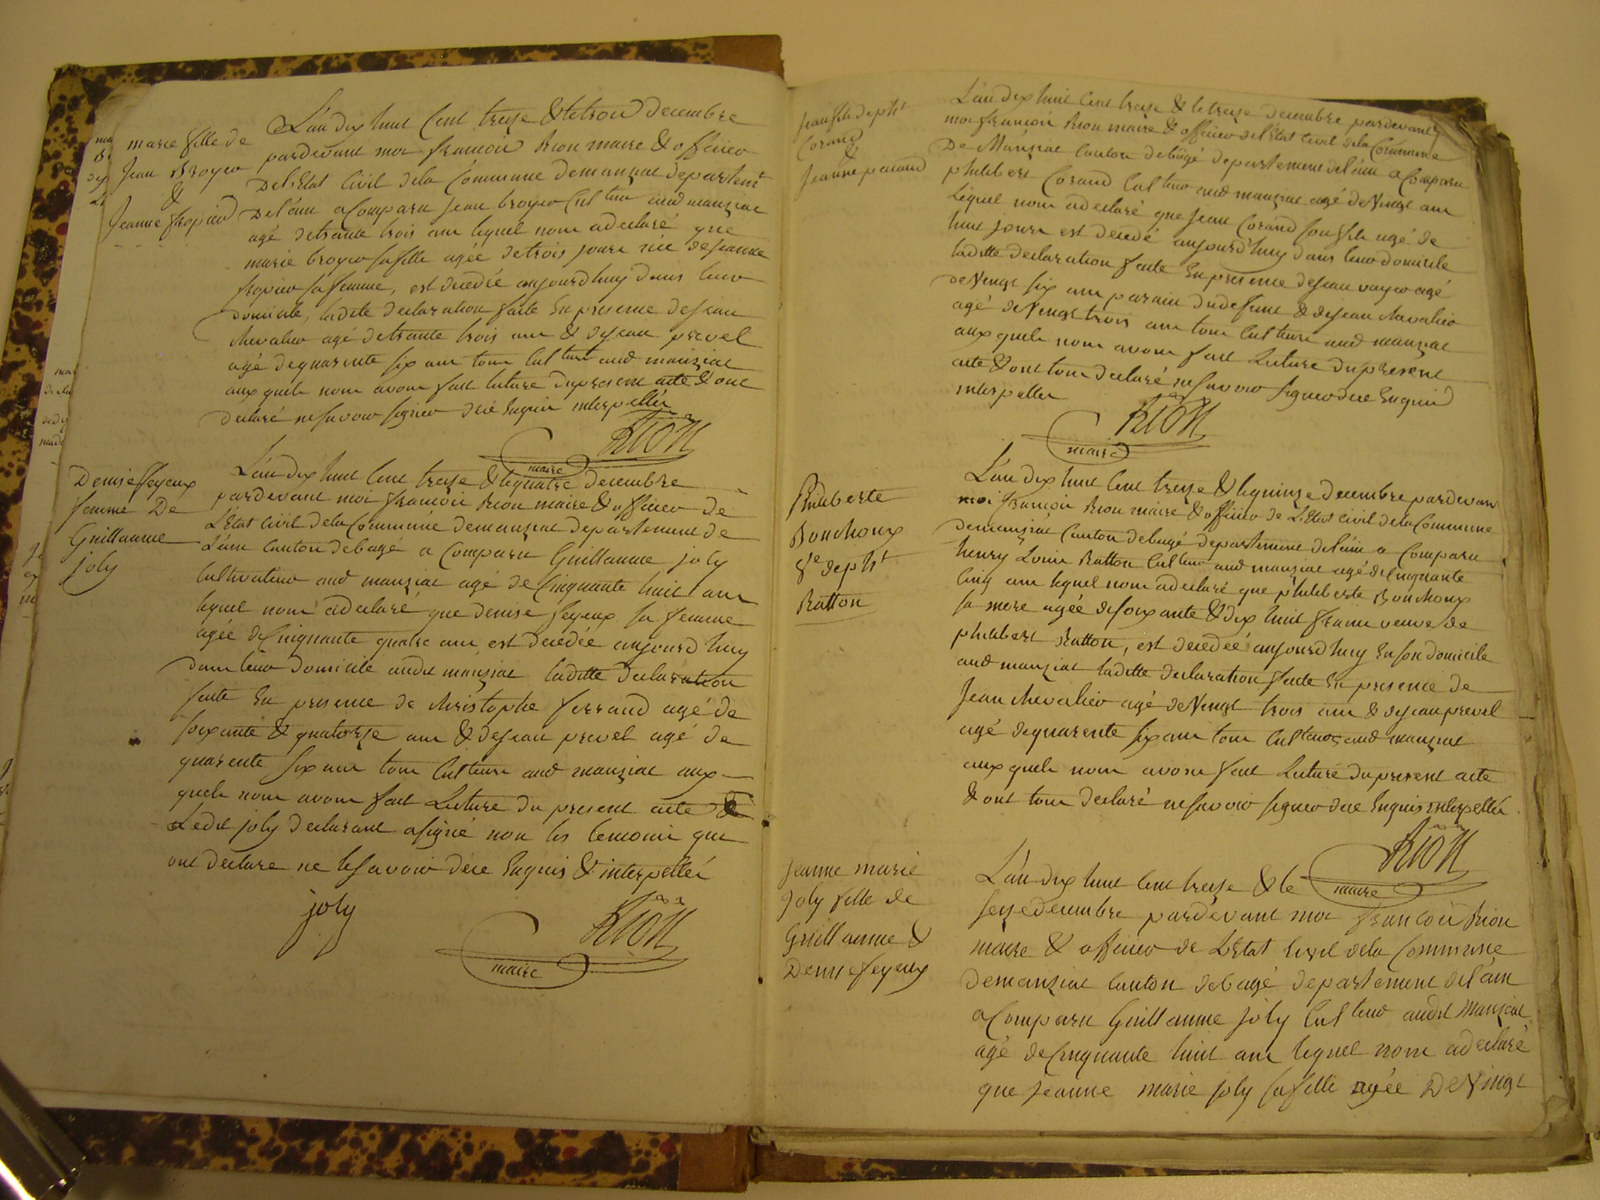 marie fille de
Jean Broyer
&
Jeanne
L'an dix huit cent treize & le trois decembre
pardevant moi françois Rion maire & officier
De l'Etat Civil de la Commune demanziat departemt
De l'ain a Comparu Jean broyer Cul teur aud manziat
agé detrante trois ans lequel nous a declaré que
marie broyer sa fille agée de trois jours née de jeanne
sa femme, est decedée aujourd'huy dans leur
domicile, ladite declaration faite En presence de jean
chevalier agé de trante trois ans & de jean prevel
agé dequarente six ans tous Cul teurs aud manziat
aux quels nous avons fait lecture du present acte & ont
declaré ne savoir signer de ce Enquis interpellés
Rion
maire
Denise feyeux
femme De
Guillaume
joly
L'an dix huit Cent treize & le quatre decembre
pardevant moi françois Rion maire & officier de
L'Etat Civil de la Commune demanziat departement de
L'ain Canton debagé a Comparu Guillaume joly
Cultivateur aud manziat agé de Cinquante huit ans
lequel nous a declaré que denise feyeux sa femme
agée de Cinquante quatre ans est decedée aujourd huy
dans leur domicile audit manziat laditte declaration
faite En presence de christophe ferrand agé de
soixante & quatorze ans & de jean prevel agé de
quarente six ans tous Culteurs aud manziat aux
quels nous avons fait Lecture du present acte &
Ledit joly declarant a signé non les temoins qui
ont declare ne le savoir de ce Enquis & interpellés
joly
Rion
maire
Jean fils de pht
Corand
&
Jeanne
L'an dix huit Cent treize & le treize decembre pardevant
moi françois Rion maire & officier de l'Etat Civil de la Commune
De Manziat Canton debagé departement de l'ain a Comparu
philibert Corand Cul teur aud manziat agé de Vingt ans
Lequel nous a declaré que Jean Corand son fils agé de
huit jours est decedé aujourd'huy dans leur domicile
laditte declaration faite En presence de jean agé
de Vingt six ans parain du defunt & de jean chevalier
agé de Vingt trois ans tous Cul teurs aud manziat
aux quels nous avons fait Lecture du present
acte & ont tous declaré ne savoir signer de ce Enquis
interpellés
Rion
maire
Philiberte
Bonchoux
Ve de pht
Batton
L'an dix huit Cent treize & le quinze decembre pardevant
moi françois Rion maire & officier de L'Etat Civil de la Commune
demanziat Canton debagé departement de l'ain a Comparu
henry Louis Batton Cul teur aud manziat agé de Cinquante
Cinq ans lequel nous a declaré que philiberte Bonchoux
sa mere agée de soixante & dix huit ans veuve de
philibert Batton, est decedée aujourd'huy En son domicile
aud manziat laditte declaration faite En presence de
Jean chevalier agé de Vingt trois ans & de jean prevel
agé dequarente six ans tous Cul teurs aud manziat
aux quels nous avons fait Lecture du present acte
& ont tous declaré ne savoir signer de ce Enquis interpellés
Rion
maire
Jeanne marie
Joly fille de
Guillaume &
Denise feyeux
L'an dix huit cent treize & le
seize decembre pardevant moi françois Rion
maire & officier de L'Etat Civil de la Commune
demanziat Canton debagé departement de l'ain
a Comparu Guillaume joly Cul teur audit Manziat
agé de Cinquante huit ans lequel nous a declaré
que jeanne marie joly sa fille agée De Vingt